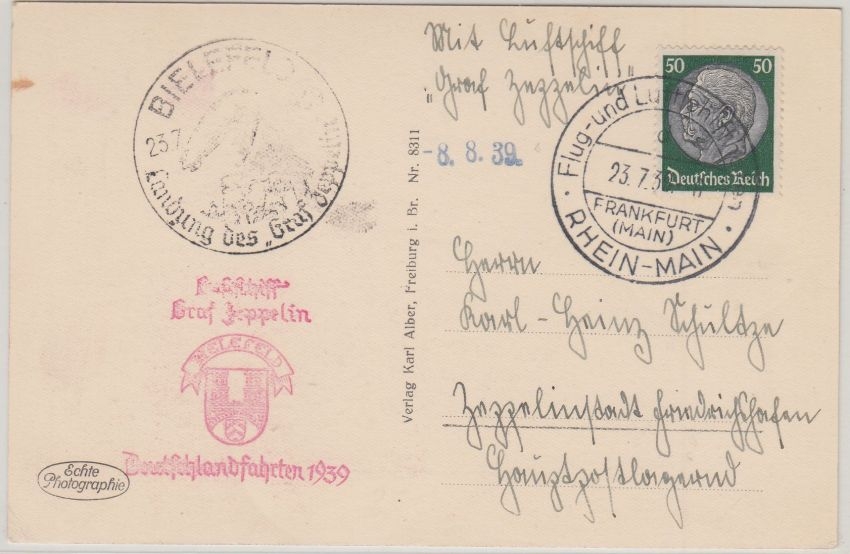 BIELEFELD
23.7.
Landung des „Graf Zeppelin
Mit Luftschiff
„Graf Zeppelin"
50 50
Deutsches Reich
Flug- und Luftschiffhafen
23.7.3
FRANKFURT
(MAIN)
RHEIN-MAIN
-8.8.39.
Verlag Karl Alber, Freiburg i. Br. Nr. 8311
Luftschiff
Graf Zeppelin
BIELEFELD
Deutschlandfahrten 1939
Echte
Photographie
Herrn
Karl-Heinz Schultze
Zeppelinstadt Friedrichshafen
Hauptpostlagernd